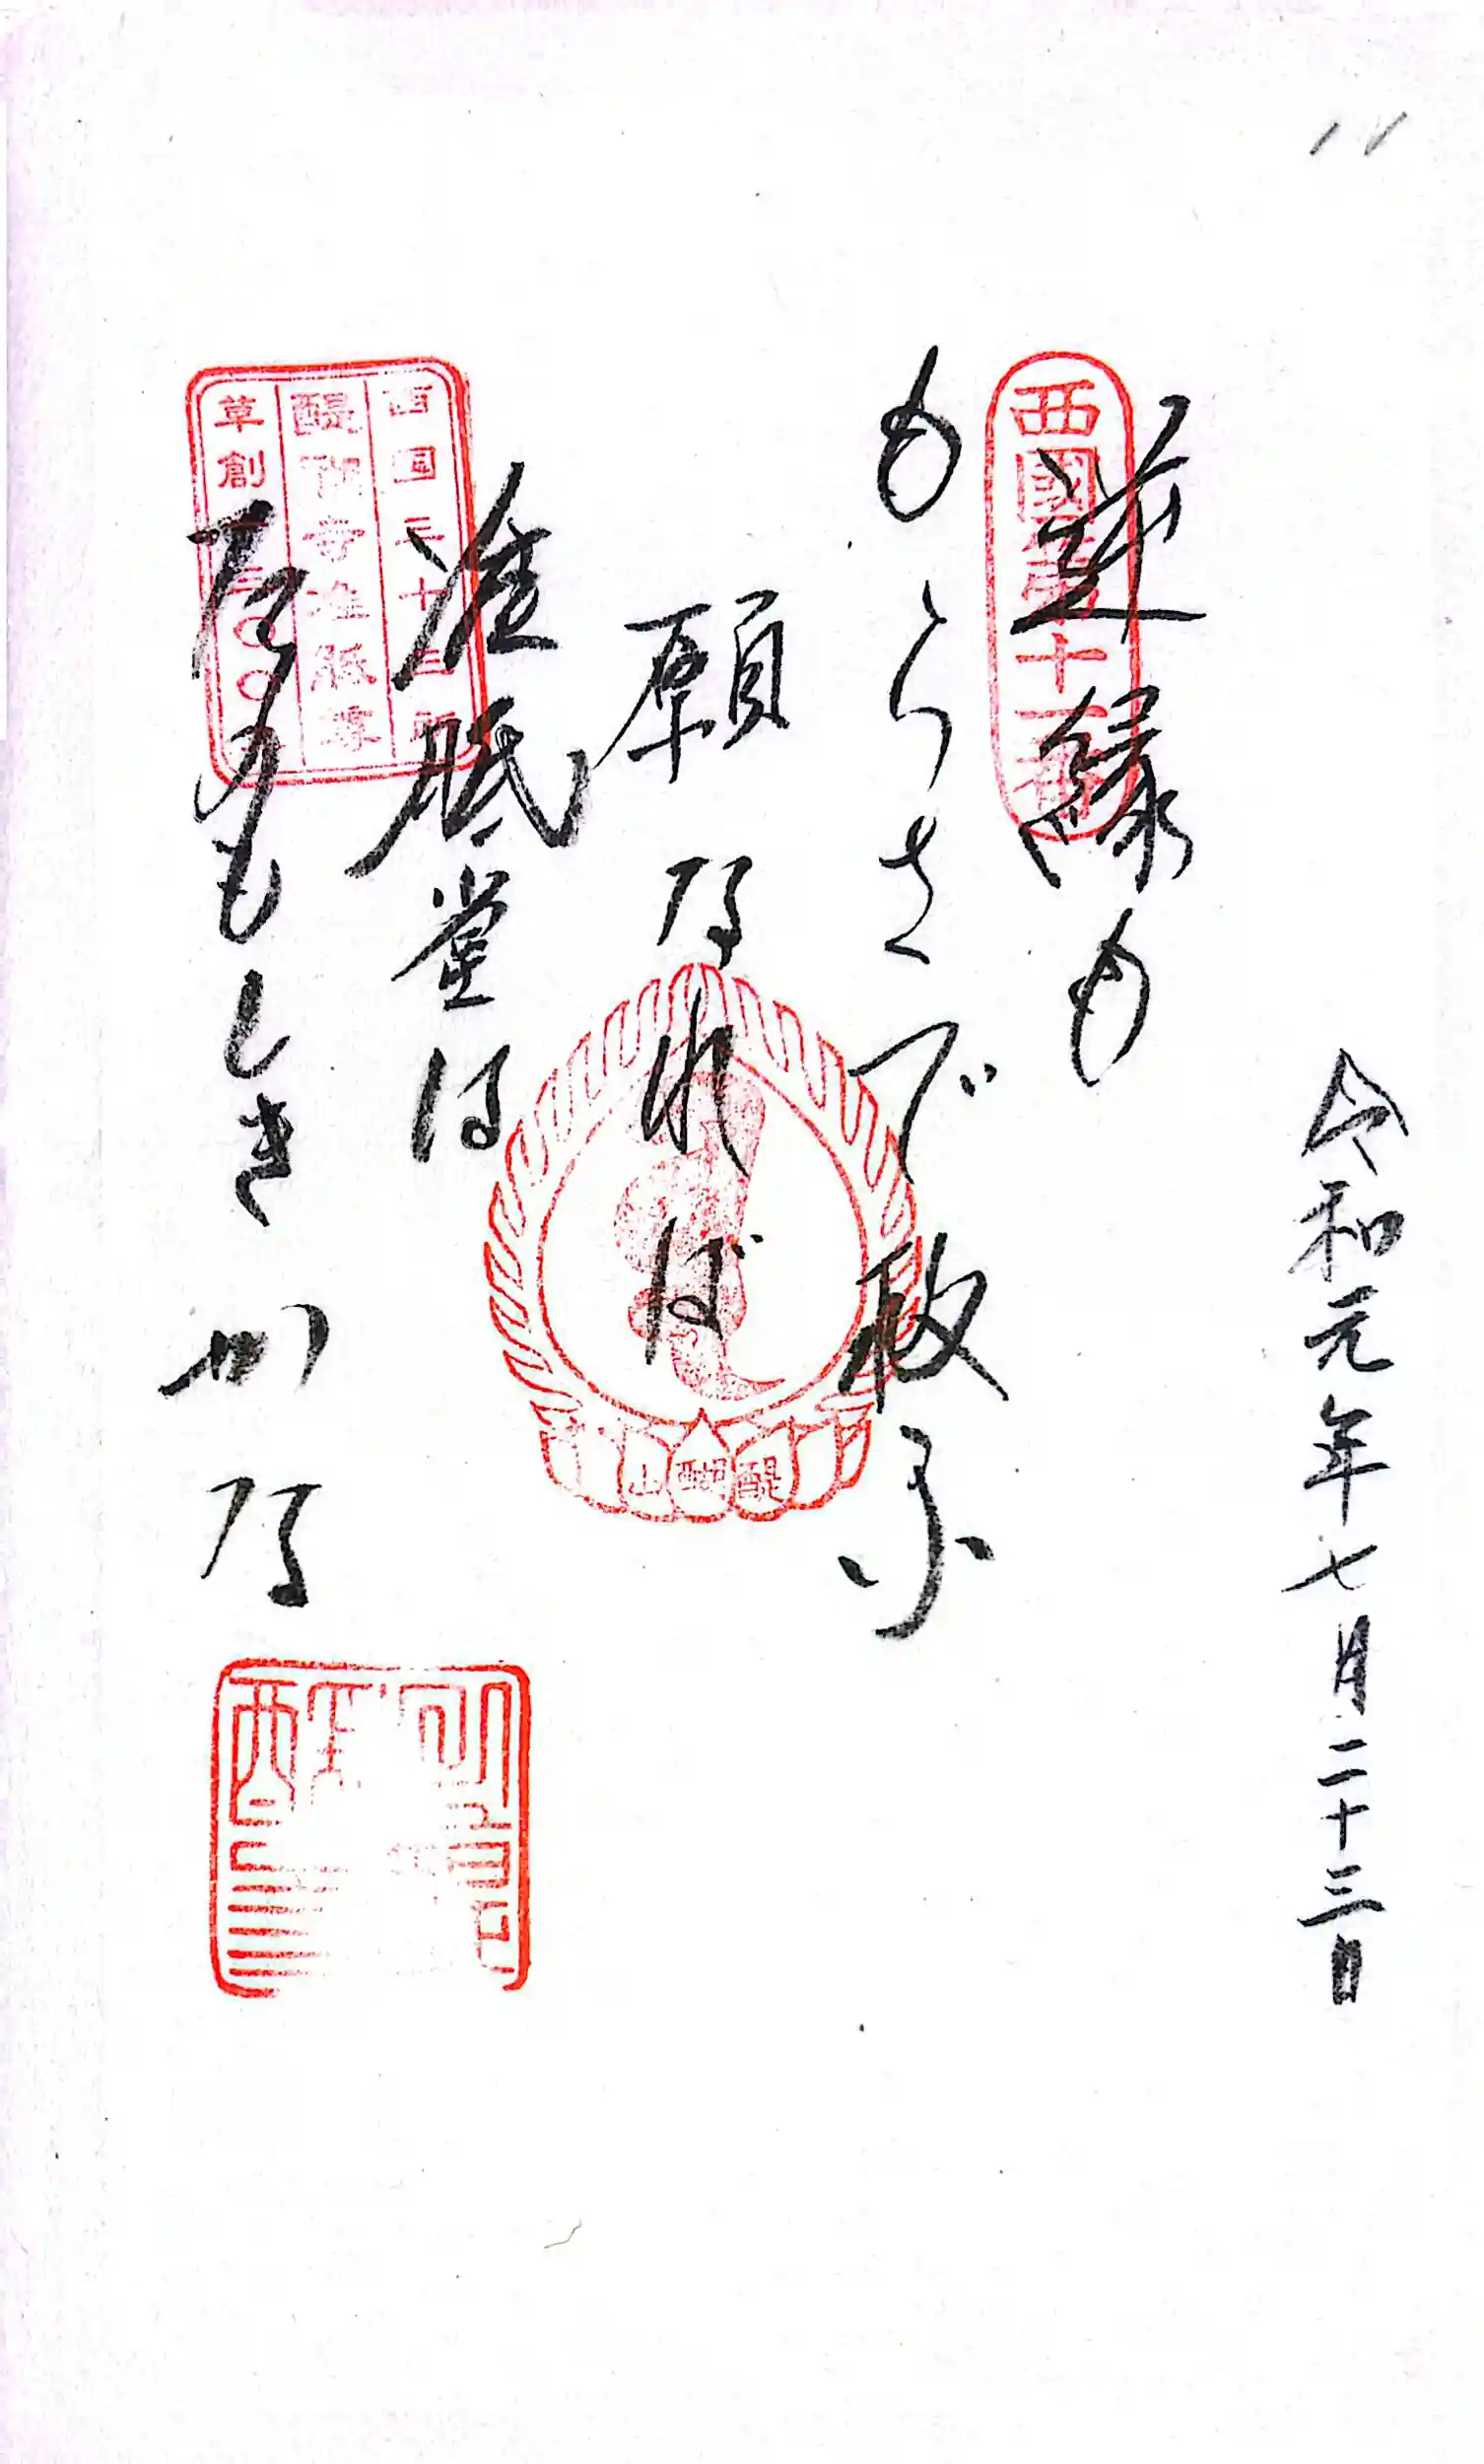 11
令和元年七月二十三日
西國第十一番
逆縁も
もらさで救ふ
願なれば
准胝堂は
たのもしきかな
西国三十三所
醍醐寺准胝尊
草創一三〇〇
醍醐山